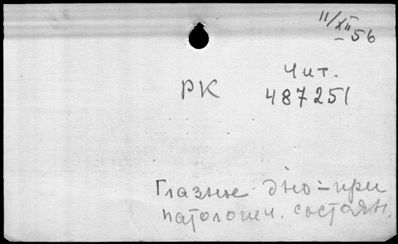 11/XII
- 56
Чит.
РК 487251
Глазное дно - при
патологич. состоян.